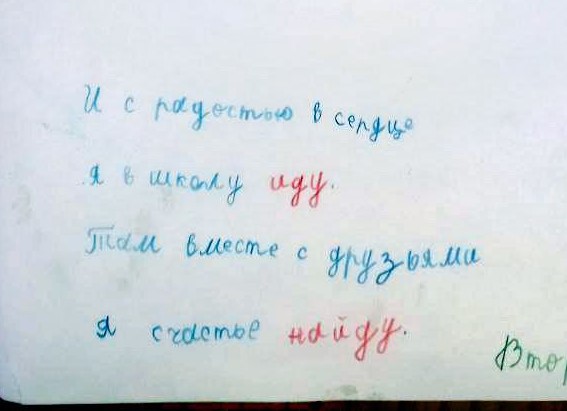 И с радостью в сердце
Я в школу иду.
Там вместе с друзьями
Я счастье найду.